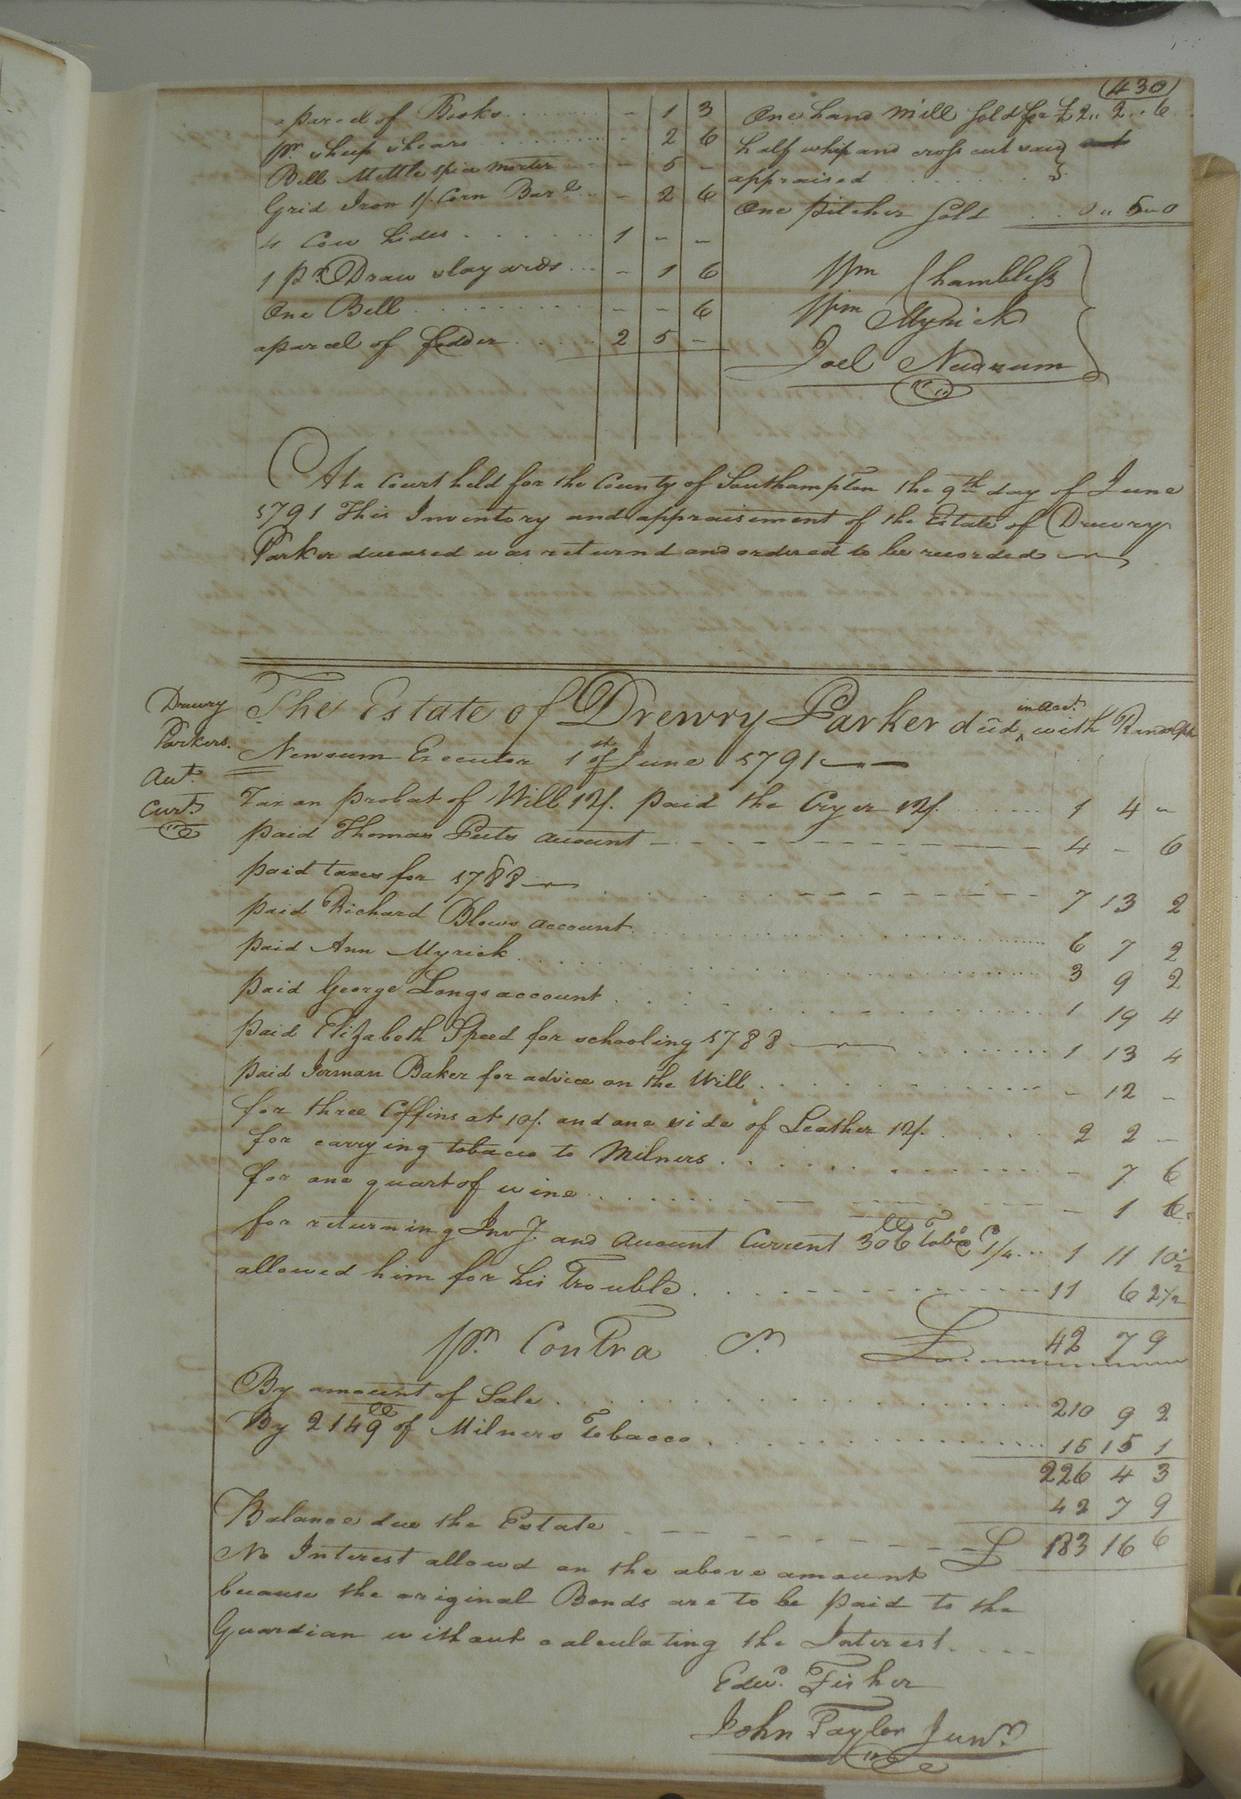 (430)
a parcel of Books - 1 3
pr. sheep shears - 2 6
Bell Mettle spice morter - 5 -
Grid Iron 1/. Corn Barl. - 2 6
4 Cow hides 1 - -
1 pr. Draw stayards - 1 6
One Bell - - 6
a parcel of fodder 2 5 -
One hand Mill sold for £2 .. 2 .. 6
half whip and cross cut saw
appraised
One pitcher sold 0 .. 5 - 0
Wm Chambless
Wm Myrick
Joel Newsum
At a Court held for the County of Southampton the 9th day of June
1791 This Inventory and appraisement of the Estate of Drewry
Parker deceased was returnd and ordered to be recorded
Drewry
Parkers.
Acct.
Curt.
The Estate of Drewry Parker decd in acct. with Randolph
Newsum Executor 1st of June 1791
Tax on probat of Will 12/. paid the Cryer 12/. 1 4 -
paid Thomas Peets account 4 - 6
paid taxes for 1788 7 13 2
paid Richard Blows account 6 7 2
paid Ann Myrick 3 9 2
paid George Longs account 1 19 4
paid Elizabeth Speed for schooling 1788 1 13 4
paid Jerman Baker for advice on the Will - 12 -
for three Coffins at 10/. and one side of Leather 12/. 2 2 -
for carrying tobacco to Milners - 7 6
for one quart of wine - 1 6
for returning Invy. and account Current 306 lb Tobo. 1 11 10½
allowed him for his Trouble 11 6 2½
pr. Contra Cr. £ 42 7 9
By amount of Sale 210 9 2
By 2149 lb of Milners Tobacco 15 15 1
226 4 3
42 7 9
Balance due the Estate £ 183 16 6
No Interest allowd on the above amount
because the original Bonds are to be paid to the
Guardian without calculating the Interest
Edwd. Fisher
John Taylor Junr.